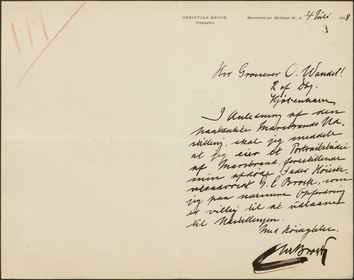 CHRISTIAN BROCK
4 Juli
Hrr Grosserer O. Wandel!
R af Dbg.
Kjøbenhavn
I Anledning af den
paatænkte Marstrands Ud,
stilling, skal jeg meddele
at jeg eier et Portrait
af Marstrand, forestillende
min afdøde Fader
G. E. Brock, som
jeg paa nærmere Opfordring
er villig til at udlaane
til Udstillingen.
Med Høiagtelse.
Chr Brock